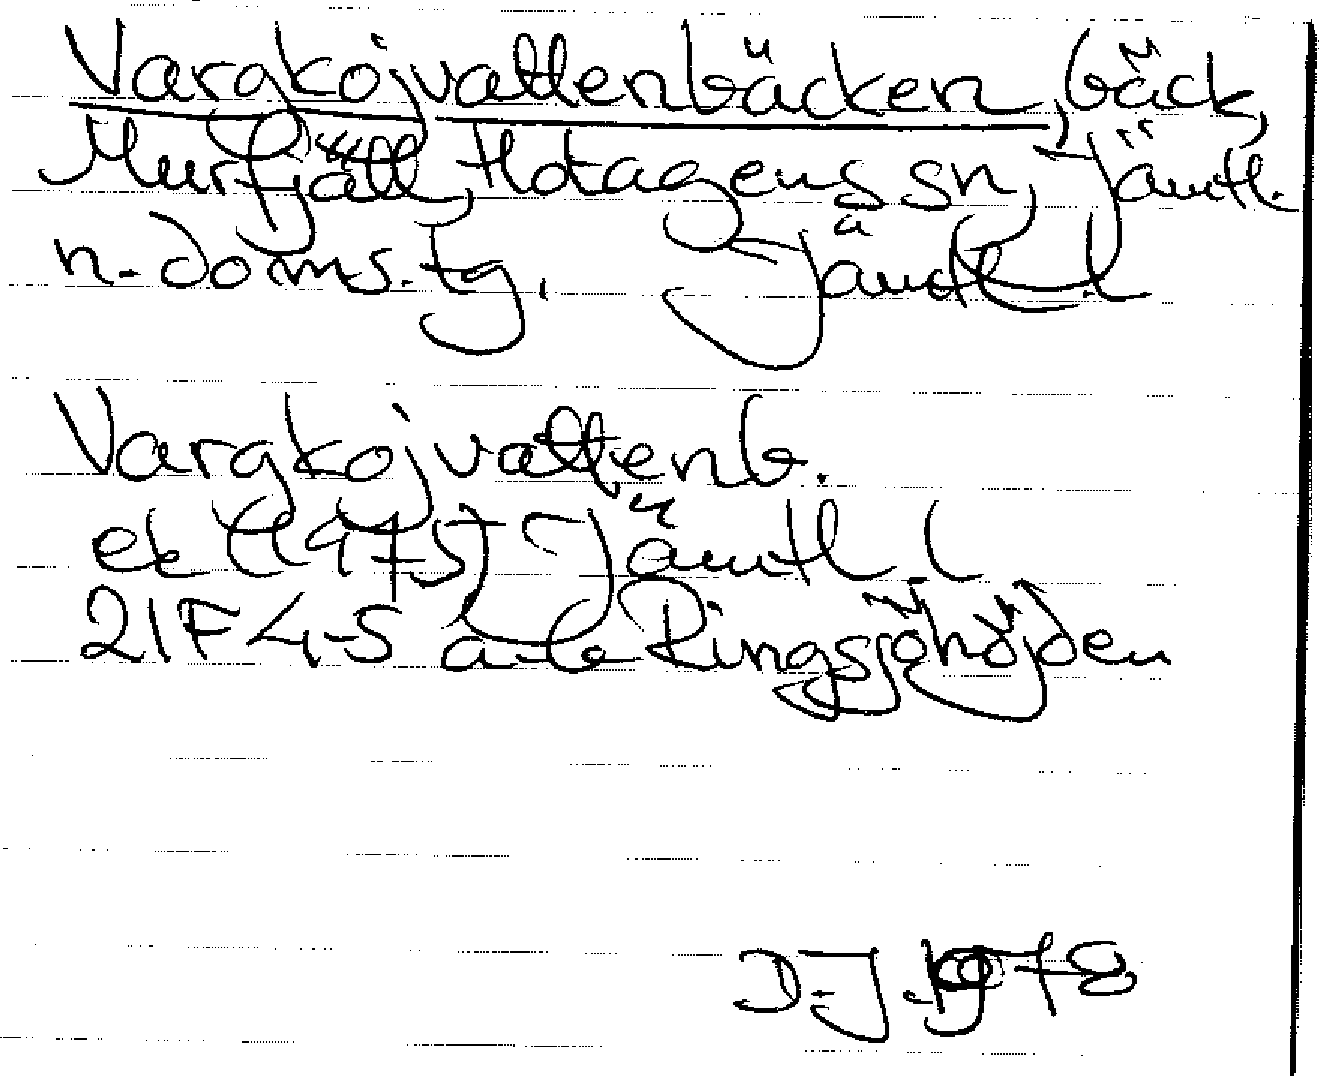 Vargkojvattenbäcken, bäck,
Murfjäll, Hotagens sn, Jämtl.
n. doms. tg, Jämtl. l
Vargkojvattenb.
ek (1975) Jämtl. l
21F 4-5 a-b Ringsjöhöjden
D-J 1978